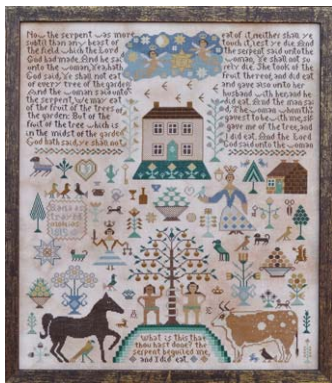 Now the serpent was more
subtil than any beast of
the field which the Lord
God had made. And he said
unto the woman, Yea hath
God said, Ye shall not eat
of every tree of the garden
And the woman said unto
the serpent, we may eat
of the fruit of the trees of
the garden: But of the
fruit of the tree which is
in the midst of the garden
God hath said, ye shall not
eat of it, neither shall ye
touch it, lest ye die. And
the serpent said unto the
woman, Ye shall not su
rely die. She took of the
fruit thereof, and did eat
and gave also unto her
husband with her, and he
did eat. And the man sa
id, The woman whom th
gavest to be with me, she
gave me of the tree, and
I did eat. And the Lord
God said unto the woman
What is this that
thou hast done? the
serpent beguiled me,
and I did eat.